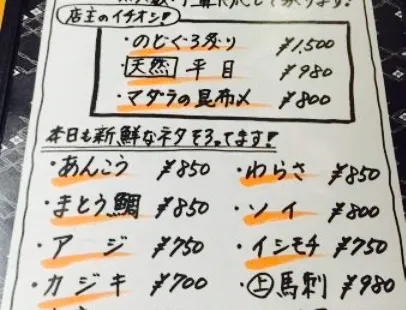 店主のイチオシ!
・のどぐろ炙り ¥1,500
・天然 平目 ¥980
・マダラの昆布〆 ¥800
本日も新鮮なネタそろってます!
・あんこう ¥850
・まとう鯛 ¥850
・アジ ¥750
・カジキ ¥700
・わらさ ¥850
・ソイ ¥800
・イシモチ ¥750
・上馬刺 ¥980